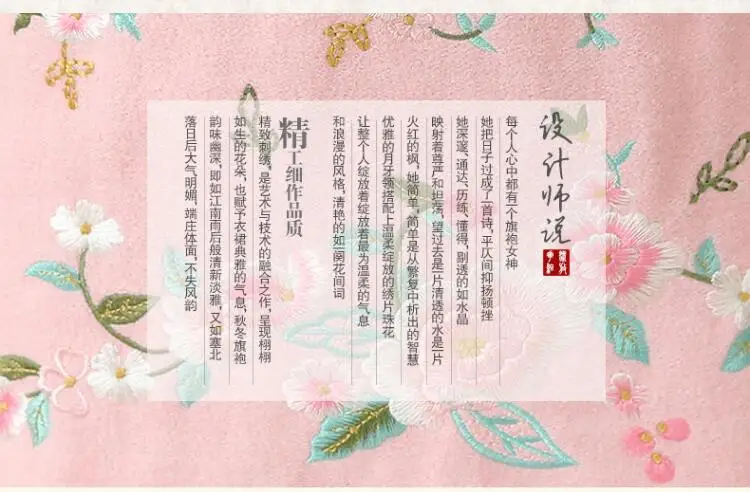 设计师说
每个人心中都有一个旗袍女神
她把日子过成了一首诗，平仄间抑扬顿挫
她深邃、通达、历练、懂得，剔透的如水晶
映射着尊严和坦荡，望过去是一片清透的水是一片
火红的枫，她简单，简单是从繁复中析出的智慧
优雅的月牙领搭配上温柔绽放的绣片珠花
让整个人绽放着绽放着最为温柔的气息
和浪漫的风格，清艳的如一阕花间词
精工细作品质
精致刺绣，是艺术与技术的融合之作，呈现栩栩
如生的花朵，也赋予衣裙典雅的气息，秋冬旗袍
韵味幽深，即如江南雨后般清新淡雅，又如塞北
落日后大气明媚，端庄体面，不失风韵